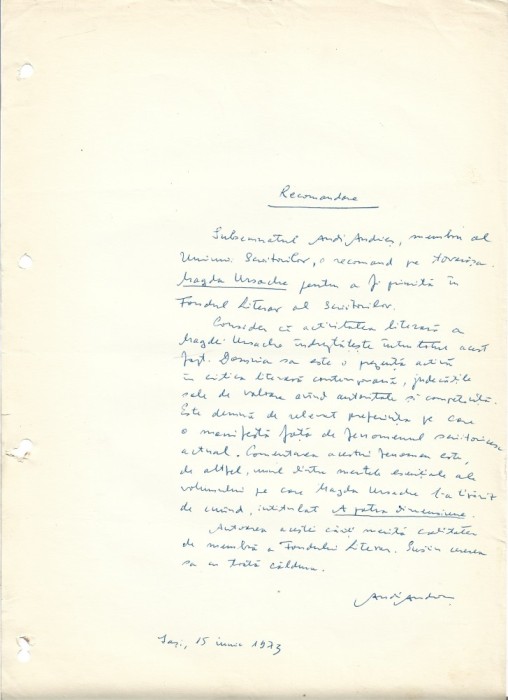 Recomandare
Subsemnatul Andi Andrieș, membru al
Uniunii Scriitorilor, o recomand pe tovarășa
Magda Ursache pentru a fi primită în
Fondul Literar al Scriitorilor.
Consider că activitatea literară a
Magdei Ursache îndreptățește întru totul acest
fapt. Domnia sa este o prezență activă
în critica literară contemporană, judecățile
sale de valoare având autoritate și competență.
Este demnă de relevat preferința pe care
o manifestă față de fenomenul scriitoricesc
actual. Comentarea acestui fenomen este,
de altfel, unul dintre meritele esențiale ale
volumului pe care Magda Ursache l-a tipărit
de curând, intitulat A patra dimensiune.
Autoarea acestei cărți merită calitatea
de membră a Fondului Literar. Susțin cererea
sa cu toată căldura.
Andi Andrieș
Iași, 15 iunie 1973